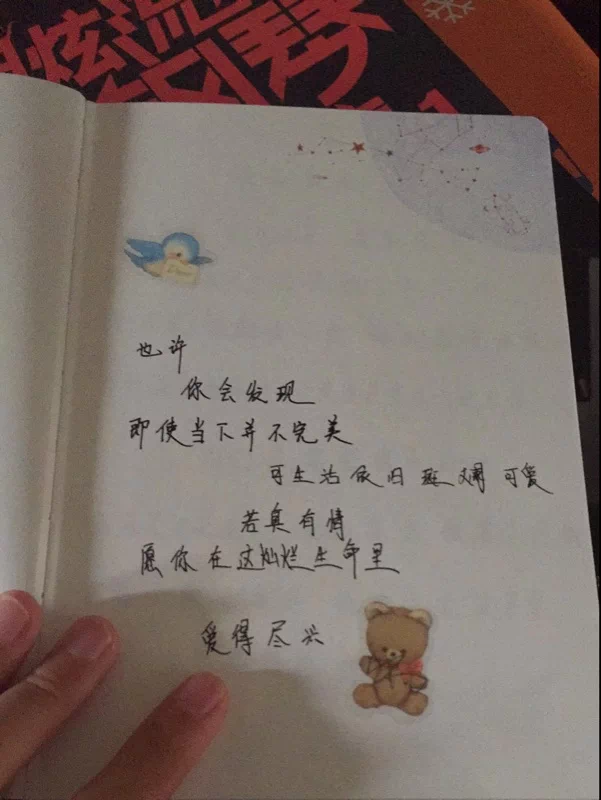 炫
也许
你会发现
即使当下并不完美
可生活依旧斑斓可爱
若有情
愿你在这灿烂生命里
爱得尽兴